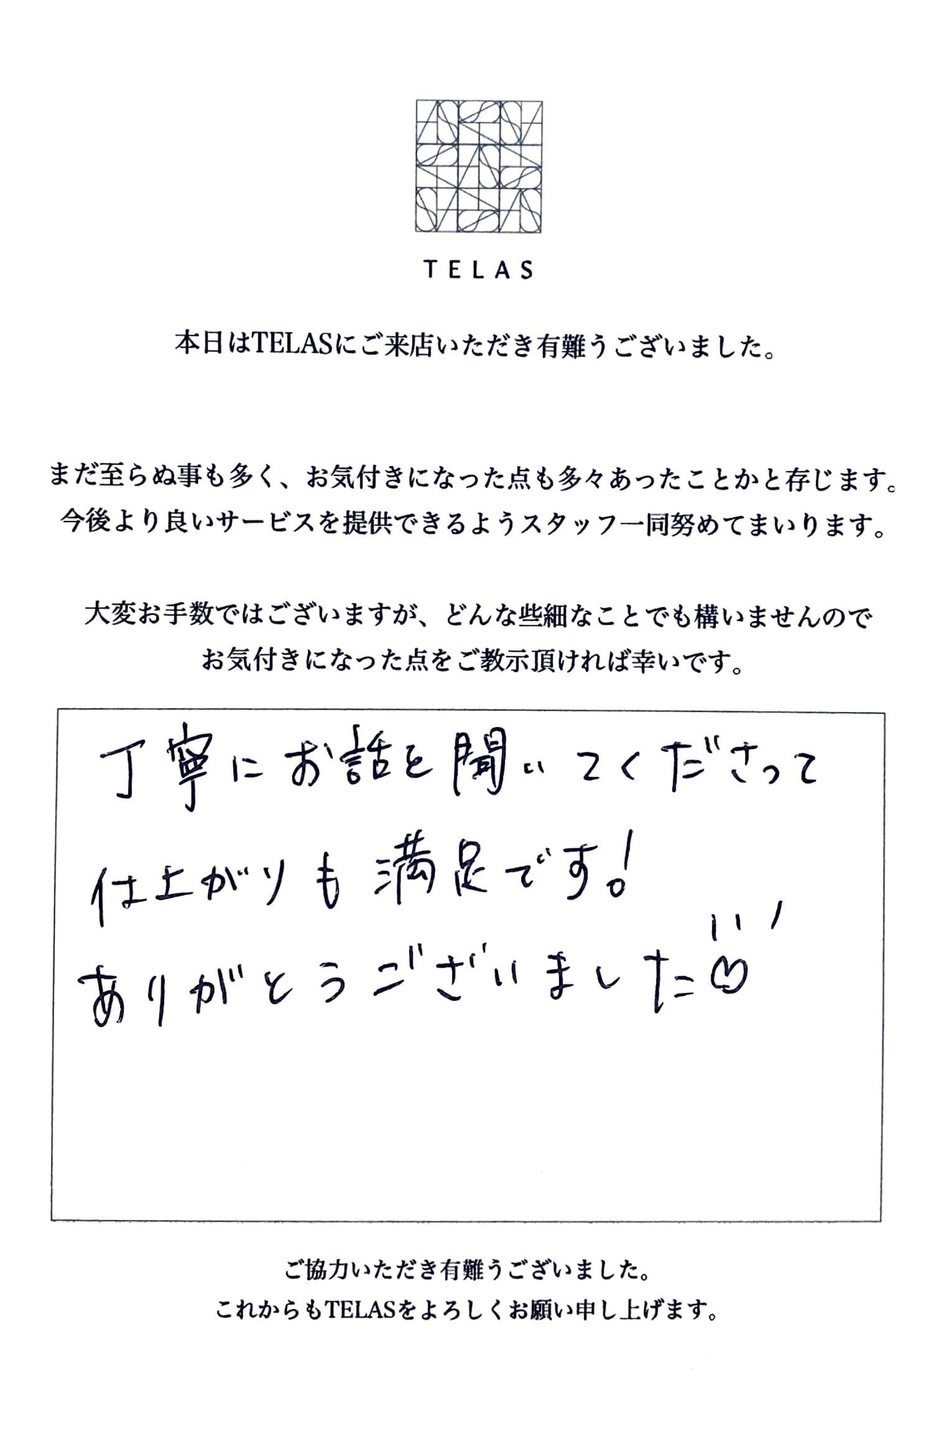 TELAS
本日はTELASにご来店いただき有難うございました。
まだ至らぬ事も多く、お気付きになった点も多々あったことかと存じます。
今後より良いサービスを提供できるようスタッフ一同努めてまいります。
大変お手数ではございますが、どんな些細なことでも構いませんので
お気付きになった点をご教示頂ければ幸いです。
丁寧にお話を聞いてくださって
仕上がりも満足です!
ありがとうございました♡
ご協力いただき有難うございました。
これからもTELASをよろしくお願い申し上げます。